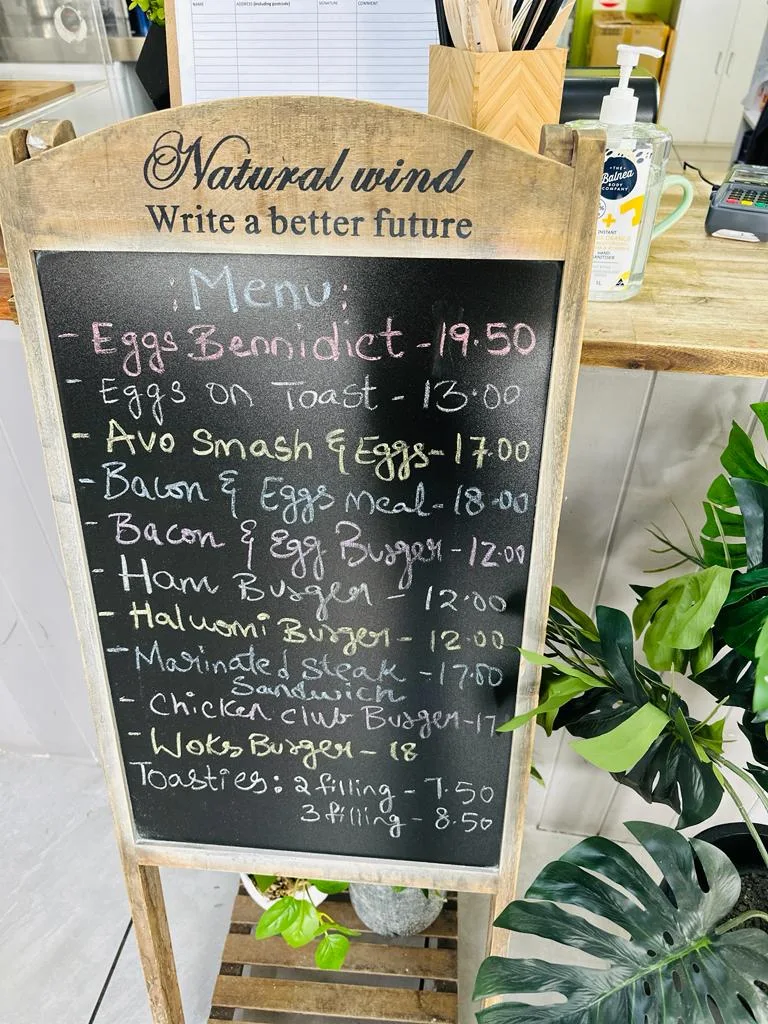 NAME ADDRESS (including postcode) SIGNATURE COMMENT
Natural wind
Write a better future
: Menu :
- Eggs Bennidict - 19.50
- Eggs on Toast - 13.00
- Avo Smash & Eggs - 17.00
- Bacon & Eggs meal - 18.00
- Bacon & Egg Burger - 12.00
- Ham Burger - 12.00
- Haluomi Burger - 12.00
- Marinated steak - 17.00
Sandwich
- Chicken club Burger - 17
- Woks Burger - 18
Toasties: 2 filling - 7.50
3 filling - 8.50
THE
Balnea
BODY
COMPANY
+7
INSTANT
HAND
SANITISER
1L